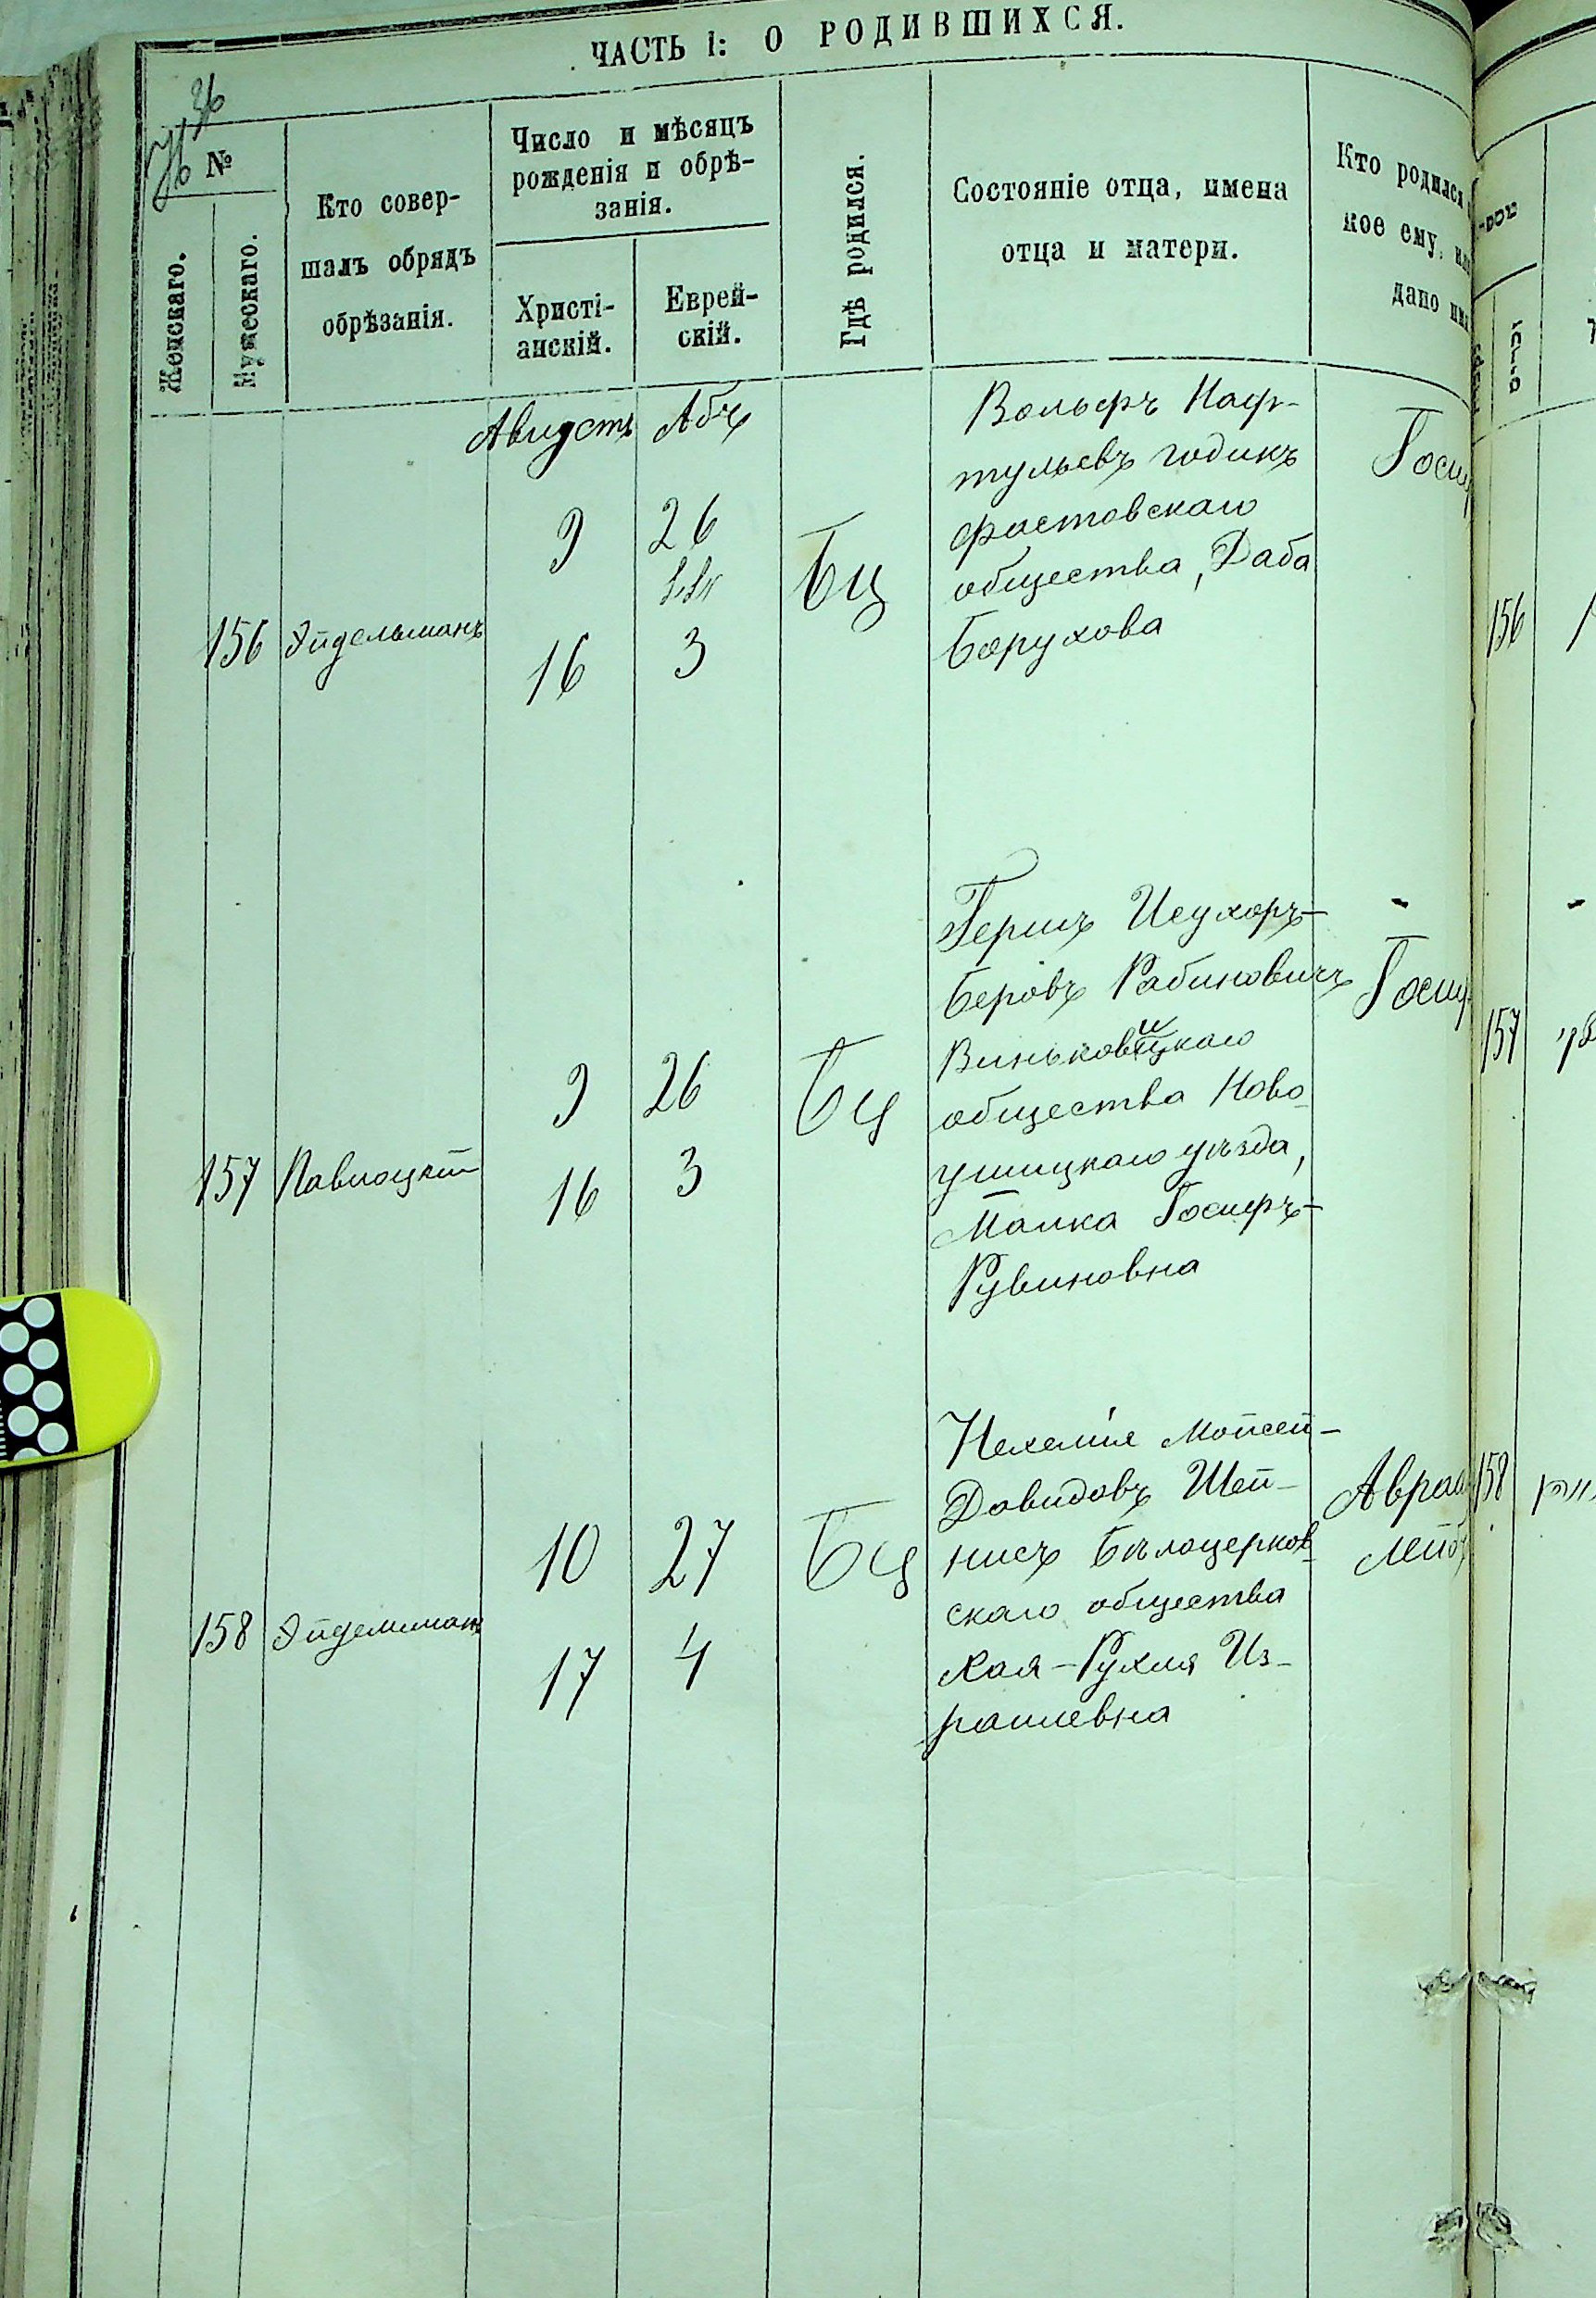 ЧАСТЬ I: О РОДИВШИХСЯ.
№
Женскаго.
Мужескаго.
Кто совер-
шалъ обрядъ
обрѣзанія.
Число и мѣсяцъ
рожденія и обрѣ-
занія.
Христі-
анскій.
Еврей-
скій.
Гдѣ родился.
Состояніе отца, имена
отца и матери.
Кто родился
кое ему, или
дано имя
Августъ Абъ
156 Эйдельманъ
9 26
16 3
Бц
Вольфъ Наф-
тульевъ Годикъ
фастовскаго
общества, Даба
Борухова
Госиф
156
157 Паволоцкій
9 26
16 3
Бц
Гершъ Исухоръ-
Беровъ Рабиновичъ
Виньковицкаго
общества Ново
ушицкаго уѣзда,
Малка Госифъ-
Рувиновна
Госиф
157
158 Эйдельманъ
10 27
17 4
Бц
Нехемія Мойсей-
Давидовъ Шей-
нисъ Бѣлоцерков
скаго общества
Хая-Рухля Из-
раилевна
Авраа
Лейб
158